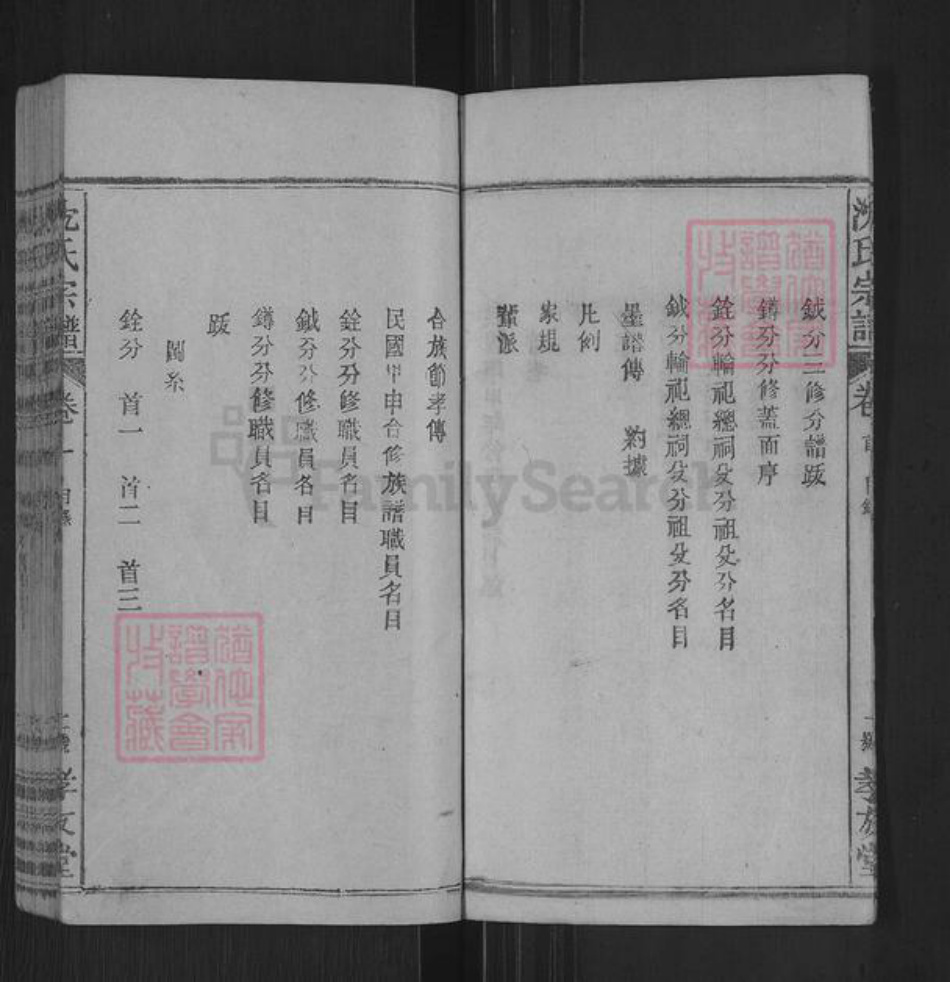 沈氏宗譜
卷首
目錄
孝友堂
鉞分三修分譜跋
鐏分分修蓋面序
銓分輪祀總祠及分祖及分名目
鉞分輪祀總祠及分祖及分名目
墨譜傳 約據
凡例
家規
輩派
合族節孝傳
民國甲申合修族譜職員名目
銓分分修職員名目
鉞分分修職員名目
鐏分分修職員名目
跋
圖系
銓分 首一 首二 首三
沈氏宗譜
卷
目錄
孝友堂
譜學會
收藏
譜學會
收藏
FamilySearch